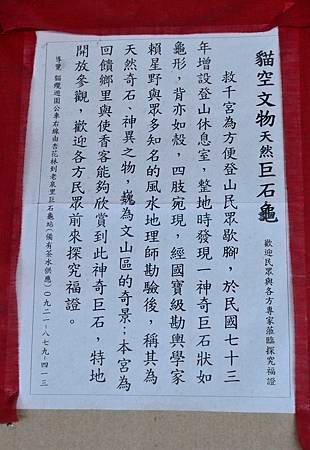 貓空文物天然巨石龜
歡迎民眾與各方專家蒞臨探究福證
救千宮為方便登山民眾歇腳，於民國七十三
年增設登山休息室，整地時發現一神奇巨石狀如
龜形，背亦如殼，四肢宛現，經國寶級勘輿學家
賴星野與眾多知名的風水地理師勘驗後，稱其為
天然奇石、神異之物，巍為文山區的奇景；本宮為
回饋鄉里與使香客能夠欣賞到此神奇巨石，特地
開放參觀，歡迎各方民眾前來探究福證。
導覽 貓纜遊園公車右線由杏花林到老泉里巨石龜站(備有茶水供應)０九二一-八七九-四一三